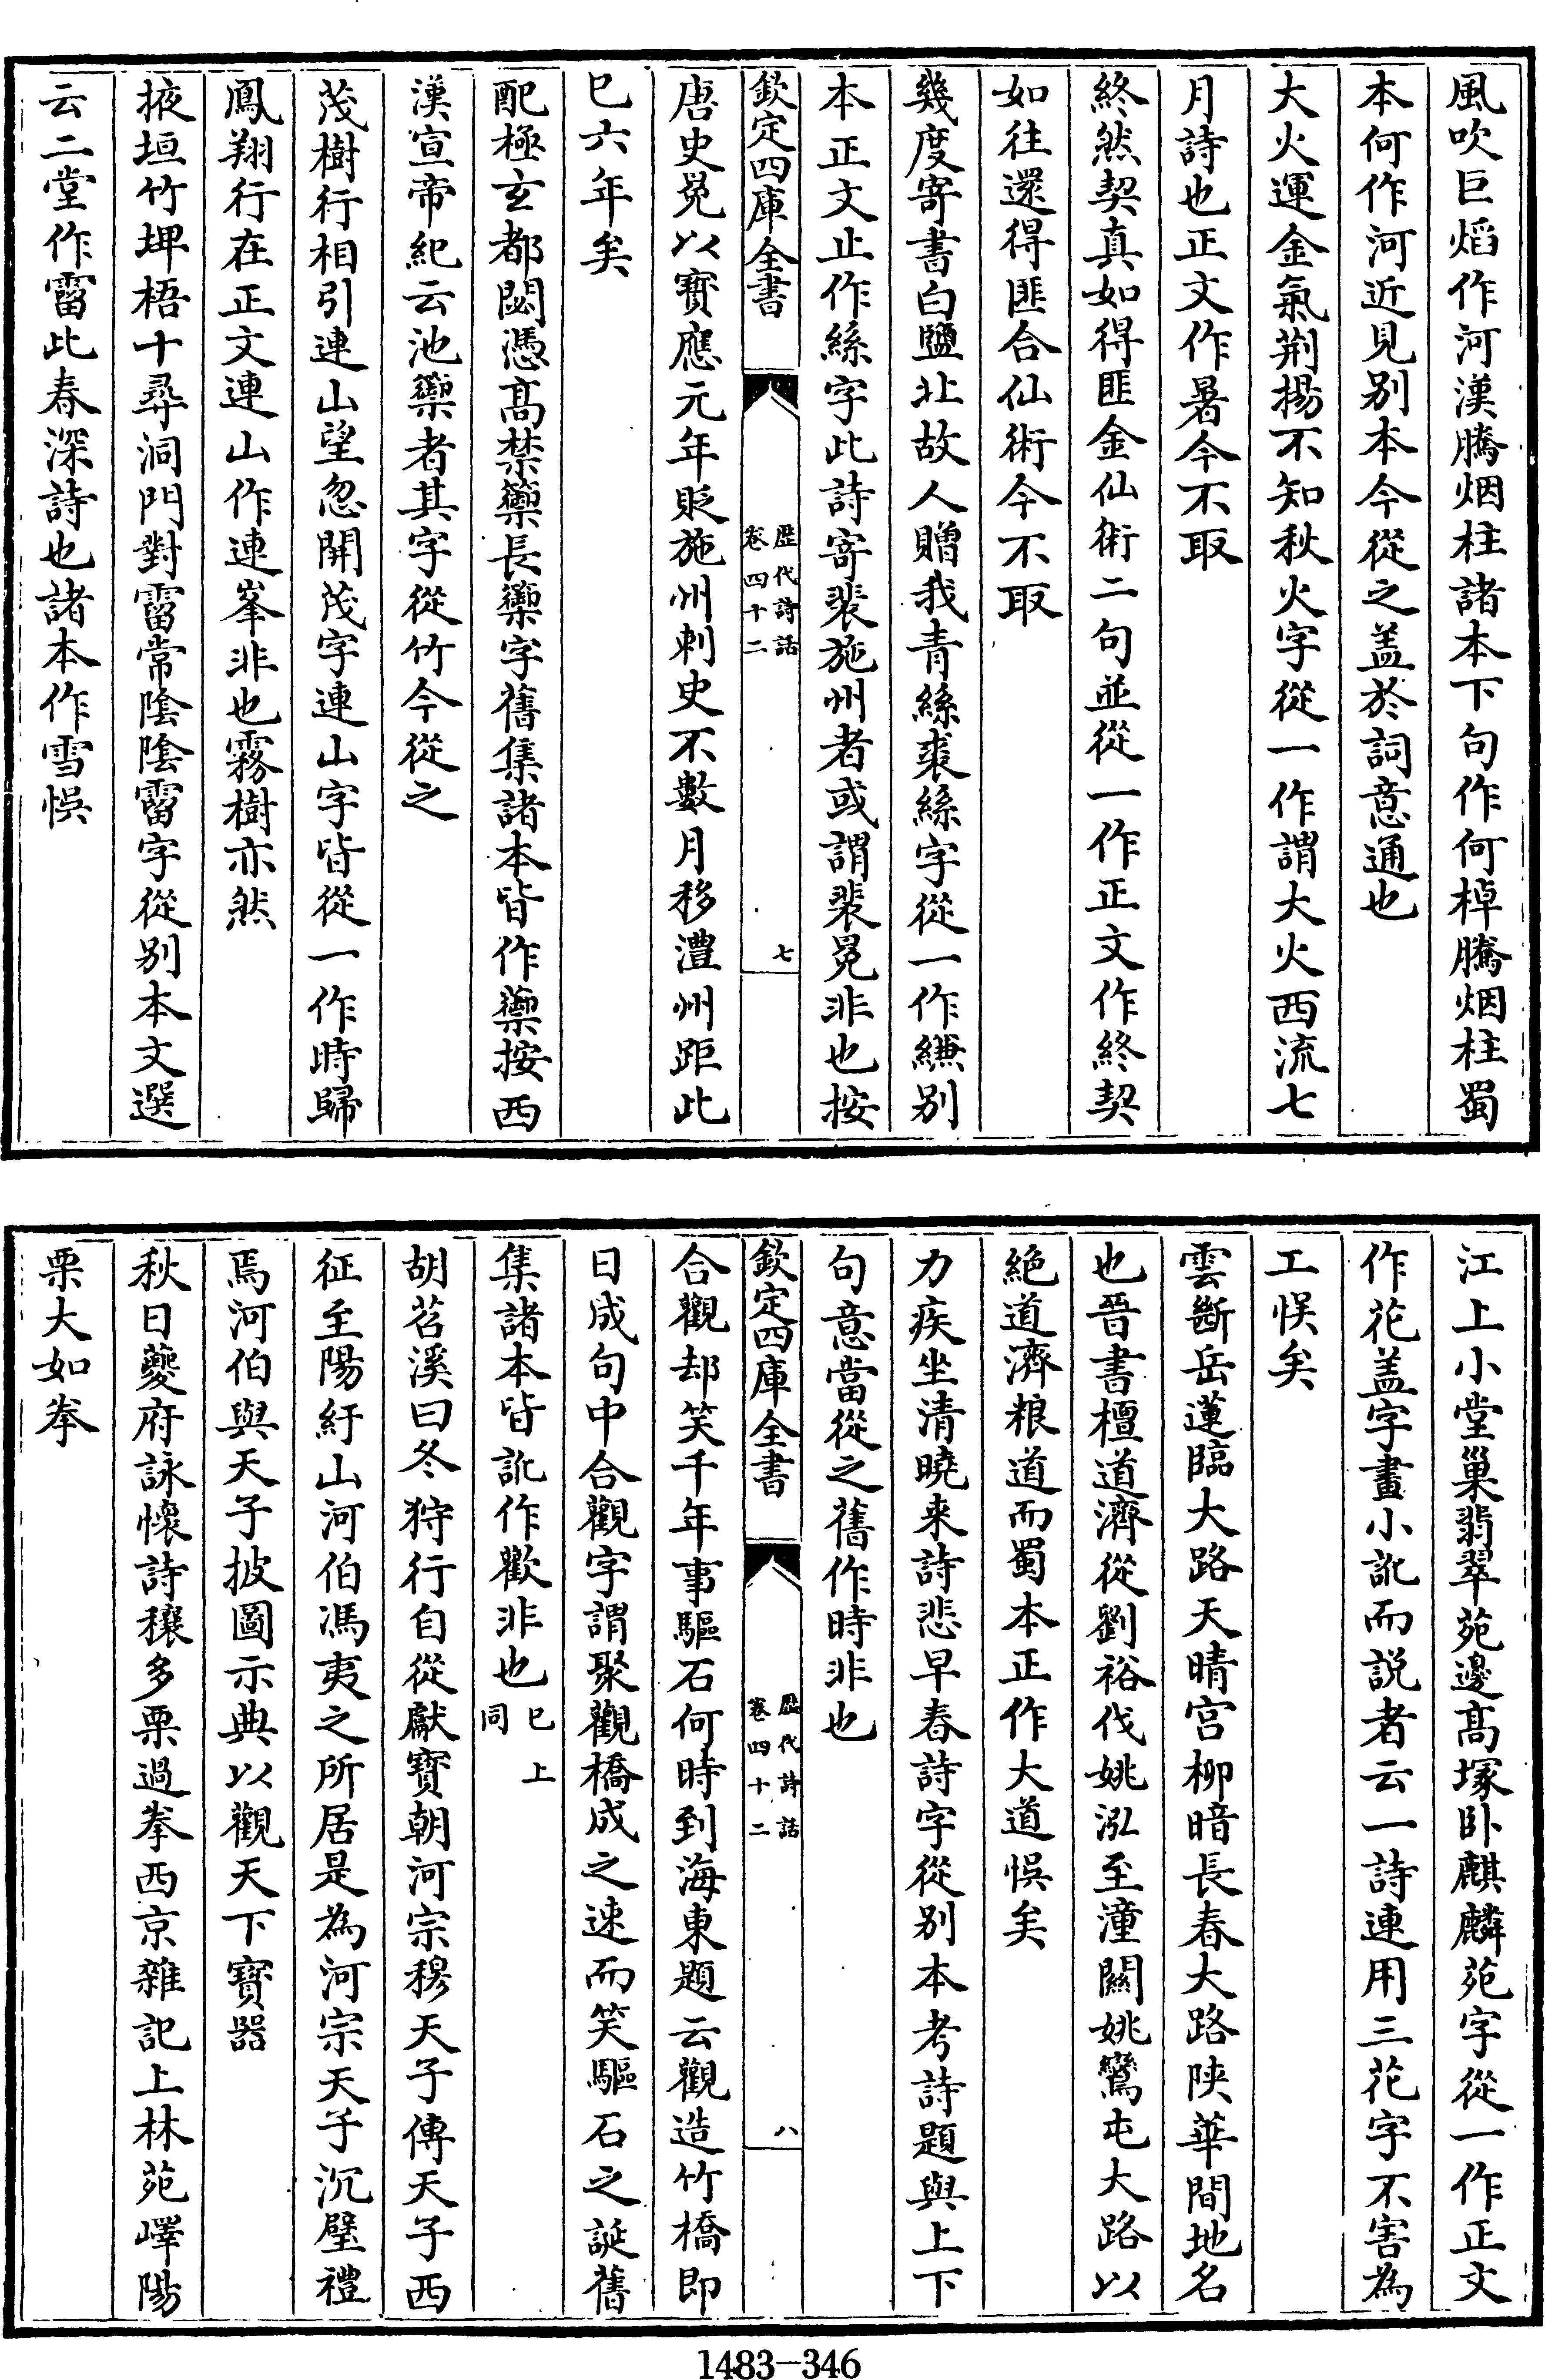 風吹巨熖作河漢騰烟柱諸本下句作何棹騰烟柱蜀
本何作河近見别本今從之盖於詞意通也
大火運金氣荆揚不知秋火字從一作謂大火西流七
月詩也正文作暑今不取
終然契真如得匪金仙術二句並從一作正文作終契
如往還得匪合仙術今不取
幾度寄書白鹽北故人贈我青絲裘絲字從一作縑别
本正文止作絲字此詩寄裴施州者或謂裴冕非也按
欽定四庫全書
歴代詩話
卷四十二
七
唐史冕以寳應元年貶施州刺史不數月移澧州距此
已六年矣
配極玄都閟憑髙禁籞長籞字舊集諸本皆作禦按西
漢宣帝紀云池籞者其字從竹今從之
茂樹行相引連山望忽開茂字連山字皆從一作時歸
鳳翔行在正文連山作連峯非也霧樹亦然
掖垣竹埤梧十尋洞門對霤常陰陰霤字從别本文選
云二堂作霤此春深詩也諸本作雪悞
江上小堂巢翡翠苑邊髙塚卧麒麟苑字從一作正文
作花盖字畫小訛而説者云一詩連用三花字不害為
工悮矣
雲斷岳蓮臨大路天晴宫柳暗長春大路陜華間地名
也晉書檀道濟從劉裕伐姚泓至潼關姚鸞屯大路以
絶道濟粮道而蜀本正作大道悞矣
力疾坐清曉来詩悲早春詩字從别本考詩題與上下
句意當從之舊作時非也
欽定四庫全書
歴代詩話
卷四十二
八
合觀却笑千年事驅石何時到海東題云觀造竹橋即
日成句中合觀字謂聚觀橋成之速而笑驅石之誕舊
集諸本皆訛作歡非也已上同
胡苕溪曰冬狩行自從獻寳朝河宗穆天子傳天子西
征至陽紆山河伯馮夷之所居是為河宗天子沉璧禮
焉河伯與天子披圖示典以觀天下寳器
秋日夔府詠懷詩穰多栗過拳西京雜記上林苑嶧陽
栗大如拳
1483-346